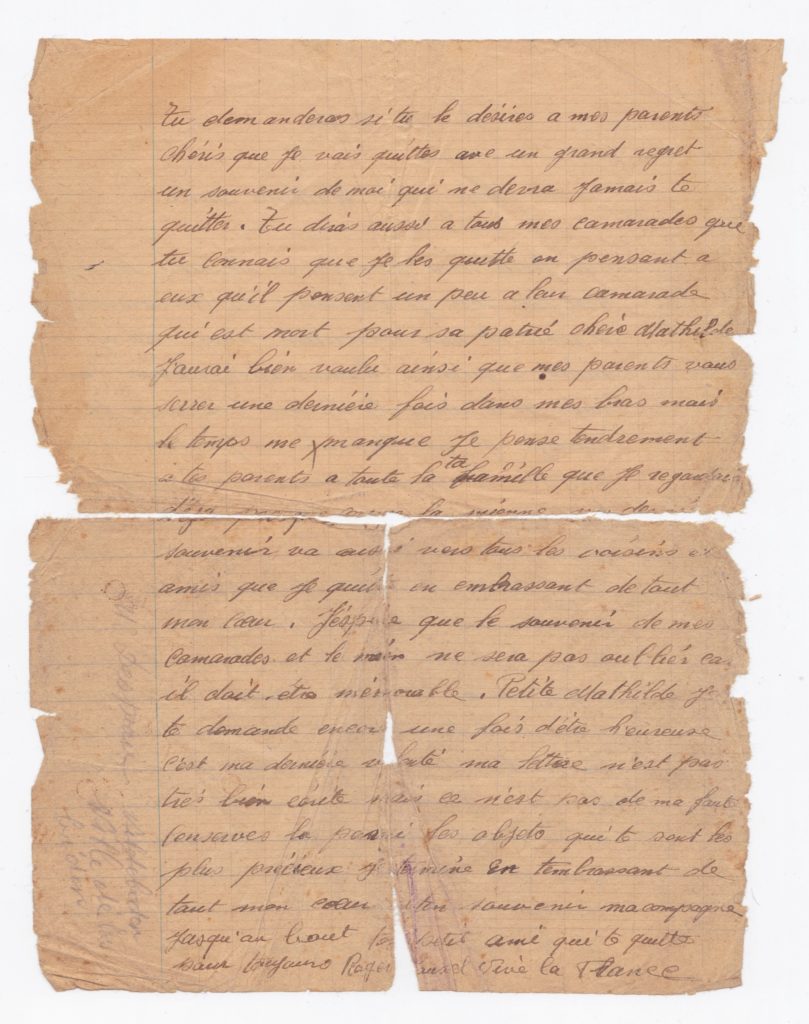 Tu demanderas si tu le désires a mes parents
chéris que Je vais quittes ave un grand regret
un souvenir de moi qui ne devra Jamais te
quitter. Tu diras aussi a tous mes camarades que
tu connais que Je les quitte en pensant a
eux qu'il pensent un peu a leur camarade
qui est mort pour sa patrie chère Mathilde
J'aurai bien voulu ainsi que mes parents vous
serrer une dernière fois dans mes bras mais
le temps me manque Je pense tendrement
a tes parents a toute la ta famille que Je regardais
déja presque la mienne
souvenir va aussi vers tous les voisins et
amis que Je quitte en embrassant de tout
mon cœur. J'éspère que le souvenir de mes
camarades et le mien ne sera pas oublier car
il doit être mémorable. Petite Mathilde Je
te demande encore une fois d'être heureuse
c'est ma dernière volonté ma lettre n'est pas
très bien écrite mais ce n'est pas de ma faute
conserves la parmi les objets qui te sont les
plus précieux Je termine en t'embrassant de
tout mon cœur souvenir ma compagne
Jusqu'au bout ton petit ami qui te quitte
pour toujours Roger Vive la France